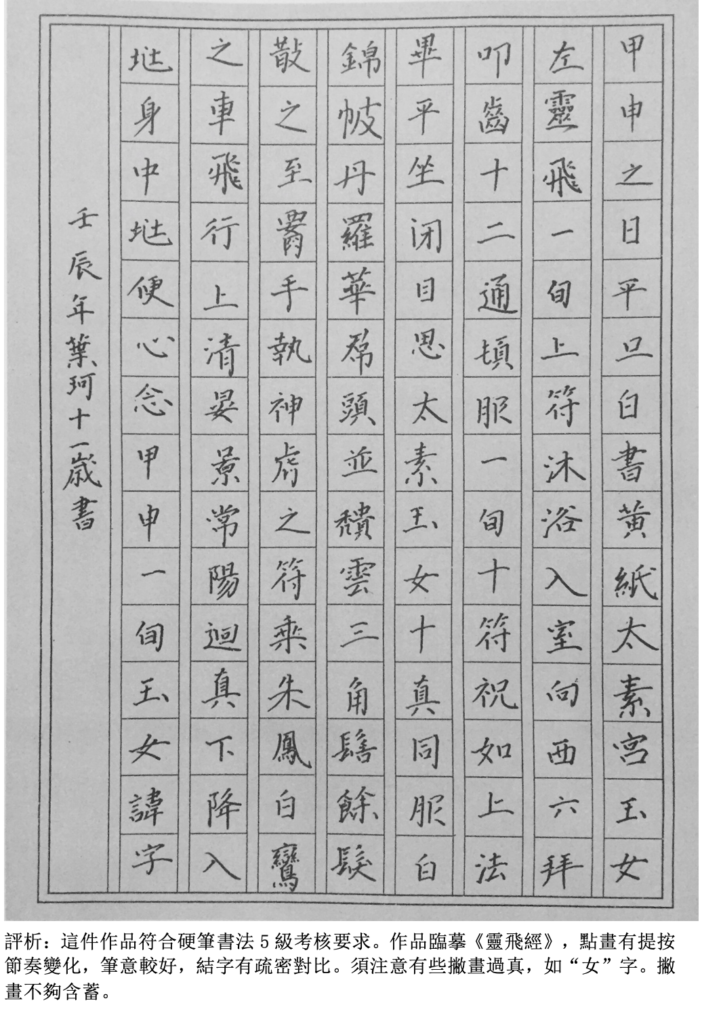 甲申之日平旦白書黃紙太素宮玉女
左靈飛一旬上符沐浴入室向西六拜
叩齒十二通頓服一旬十符祝如上法
畢平坐閉目思太素玉女十真同服白
錦帔丹羅華帬頭並穨雲三角髻餘髮
散之至腰手執神虎之符乘朱鳳白鸞
之車飛行上清晏景常陽迴真下降入
兆身中兆便心念甲申一旬玉女諱字
壬辰年葉珂十一歲書
評析：這件作品符合硬筆書法5級考核要求。作品臨摹《靈飛經》，點畫有提按
節奏變化，筆意較好，結字有疏密對比。須注意有些撇畫過真，如“女”字。撇
畫不夠含蓄。